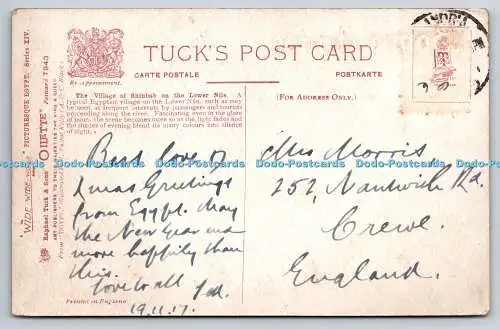 TUCK'S POST CARD
By Appointment.
CARTE POSTALE
POSTKARTE
(FOR ADDRESS ONLY.)
"WIDE-WIDE-WORLD" "PICTURESQUE EGYPT. Series XIV.
Raphael Tuck & Sons' "OILETTE" Postcard 7943
The Village of Shinbab on the Lower Nile. A
typical Egyptian village on the Lower Nile, such as may
meet at frequent intervals by passengers and tourists
proceeding along the river. Fascinating even in the glare
of boat. The scene becomes more so as the light fades and
the shades of evening blend its many colours into silence
of night.
Best love &
Xmas Greetings
from Egypt. May
the New Year end
more happily than
this.
Love to all
19.11.17.
Mrs Morris
257, Nantwich Rd.
Crewe.
England.
Printed in England
Dodo-Postcards Dodo-Postcards Dodo-Postcards Dodo-Postcards